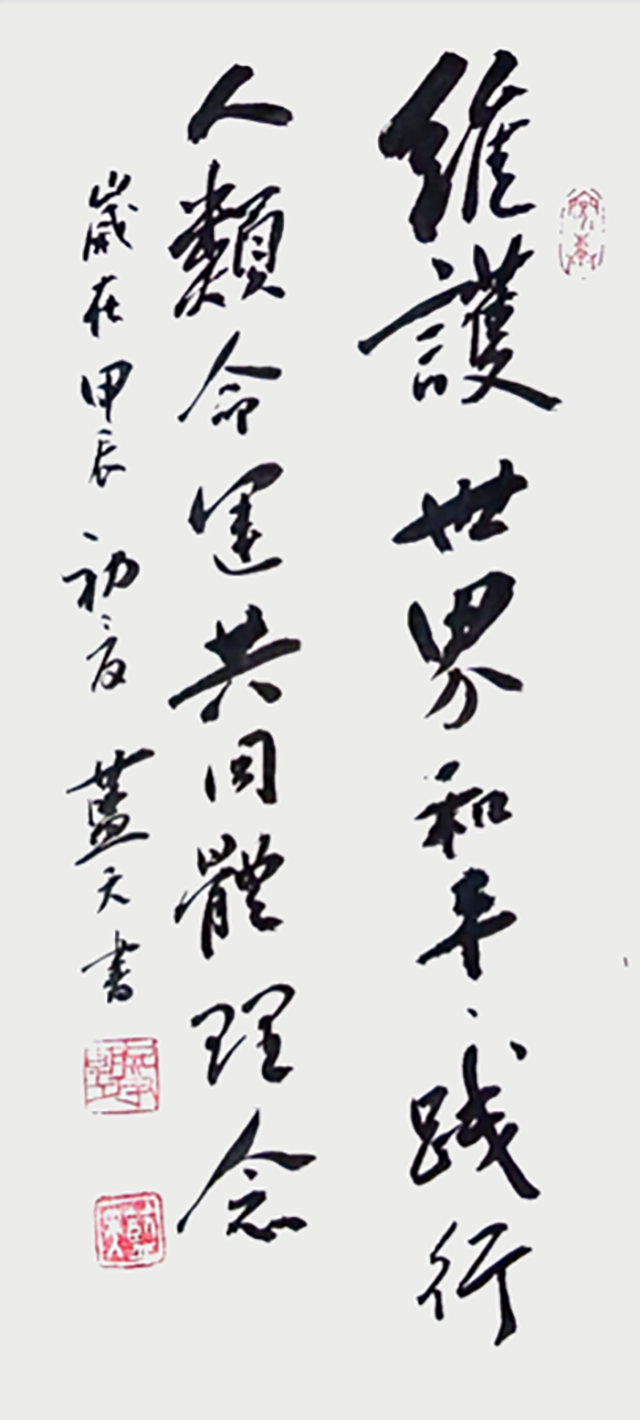 維護世界和平、踐行
人類命運共同體理念
歲在甲辰初夏 藍天書